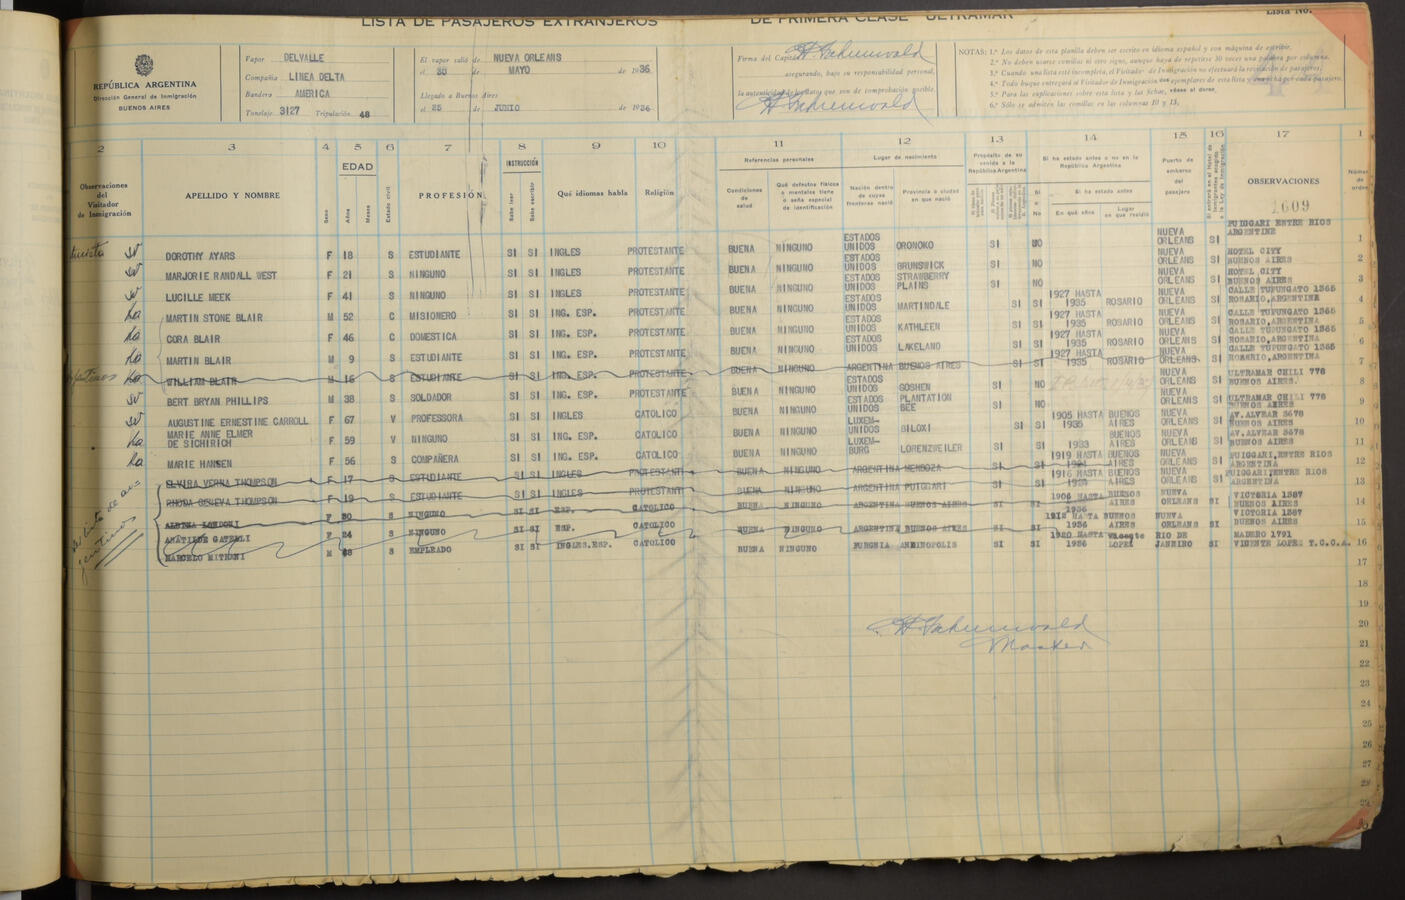 LISTA DE PASAJEROS EXTRANJEROS DE PRIMERA CLASE ULTRAMAR
Lista No.
REPÚBLICA ARGENTINA
Dirección General de Inmigración
BUENOS AIRES
Vapor DELVALLE
Compañía LINEA DELTA
Bandera AMERICA
Tonelaje 3127 Tripulación 48
El vapor salió de NUEVA ORLEANS
el 30 de MAYO de 1936
Llegado a Buenos Aires
el 25 de JUNIO de 1936
Firma del Capitán
asegurando, bajo su responsabilidad personal,
la autenticidad de los datos que son de comprobación posible.
NOTAS: 1.ª Los datos de esta planilla deben ser escrito en idioma español y con máquina de escribir.
2.ª No deben usarse comillas ni otro signo, aunque haya de repetirse 30 veces una palabra por columna.
3.ª Cuando una lista esté incompleta, el Visitador de Inmigración no efectuará la revisación de pasajeros.
4.ª Todo buque entregará al Visitador de Inmigración ejemplares de esta lista y una ficha por cada pasajero.
5.ª Para las explicaciones sobre esta lista y las fichas, véase al dorso.
6.ª Sólo se admiten las comillas en las columnas 10 y 15.
2 3 4 5 6 7 8 9 10 11 12 13 14 15 16 17 1
Observaciones del Visitador de Inmigración
APELLIDO Y NOMBRE
Sexo
EDAD
Años
Meses
Estado civil
PROFESIÓN
INSTRUCCIÓN
Sabe leer
Sabe escribir
Qué idiomas habla
Religión
Referencias personales
Condiciones de salud
Qué defectos físicos o mentales tiene o seña especial de identificación
Lugar de nacimiento
Nación dentro de cuyas fronteras nació
Provincia o ciudad en que nació
Propósito de su venida a la República Argentina
Si ha estado antes o no en la República Argentina
Si o No
Si ha estado antes
En qué años
Lugar en que residió
Puerto de embarco del pasajero
OBSERVACIONES
1609
Número de orden
DOROTHY AYARS F 18 S ESTUDIANTE SI SI INGLES PROTESTANTE BUENA NINGUNO ESTADOS UNIDOS ORONOKO SI NO NUEVA ORLEANS SI PUIGGARI ENTRE RIOS ARGENTINE 1
MARJORIE RANDALL WEST F 21 S NINGUNO SI SI INGLES PROTESTANTE BUENA NINGUNO ESTADOS UNIDOS BRUNSWICK SI NO NUEVA ORLEANS SI HOTEL CITY BUENOS AIRES 2
LUCILLE MEEK F 41 S NINGUNO SI SI INGLES PROTESTANTE BUENA NINGUNO ESTADOS UNIDOS STRAWBERRY PLAINS SI NO NUEVA ORLEANS SI HOTEL CITY BUENOS AIRES 3
MARTIN STONE BLAIR M 52 C MISIONERO SI SI ING. ESP. PROTESTANTE BUENA NINGUNO ESTADOS UNIDOS MARTINDALE SI SI 1927 HASTA 1935 ROSARIO NUEVA ORLEANS SI CALLE TUPUNGATO 1365 ROSARIO, ARGENTINA 4
CORA BLAIR F 46 C DOMESTICA SI SI ING. ESP. PROTESTANTE BUENA NINGUNO ESTADOS UNIDOS KATHLEEN SI SI 1927 HASTA 1935 ROSARIO NUEVA ORLEANS SI CALLE TUPUNGATO 1365 ROSARIO, ARGENTINA 5
MARTIN BLAIR M 9 S ESTUDIANTE SI SI ING. ESP. PROTESTANTE BUENA NINGUNO ESTADOS UNIDOS LAKELAND SI SI 1927 HASTA 1935 ROSARIO NUEVA ORLEANS SI CALLE TUPUNGATO 1365 ROSARIO, ARGENTINA 6
WILLIAM BLAIR M 16 S ESTUDIANTE SI SI ING. ESP. PROTESTANTE BUENA NINGUNO ARGENTINA BUENOS AIRES SI SI 1927 HASTA 1935 ROSARIO NUEVA ORLEANS SI CALLE TUPUNGATO 1365 ROSARIO, ARGENTINA 7
BERT BRYAN PHILLIPS M 38 S SOLDADOR SI SI INGLES PROTESTANTE BUENA NINGUNO ESTADOS UNIDOS GOSHEN SI NO NUEVA ORLEANS SI ULTRAMAR CHILI 778 BUENOS AIRES. 8
AUGUSTINE ERNESTINE CARROLL F 67 V PROFESSORA SI SI INGLES CATOLICO BUENA NINGUNO ESTADOS UNIDOS PLANTATION BEE SI NO NUEVA ORLEANS SI ULTRAMAR CHILI 778 BUENOS AIRES 9
MARIE ANNE ELMER DE SICHIRICH F 59 V NINGUNO SI SI ING. ESP. CATOLICO BUENA NINGUNO LUXEM- UNIDOS BILOXI SI SI 1905 HASTA 1935 BUENOS AIRES NUEVA ORLEANS SI AV. ALVEAR 3678 BUENOS AIRES 10
MARIE HANSEN F 56 S COMPAÑERA SI SI ING. ESP. CATOLICO BUENA NINGUNO LUXEM- BURG LORENZWEILER SI SI 1933 BUENOS AIRES NUEVA ORLEANS SI AV. ALVEAR 3678 BUENOS AIRES 11
ELVIRA VERNA THOMPSON F 17 S ESTUDIANTE SI SI INGLES PROTESTANT BUENA NINGUNO ARGENTINA MENDOZA SI SI 1919 HASTA AIRES NUEVA ORLEANS SI PUIGGARI, ENTRE RIOS ARGENTINA 12
RHODA GENEVA THOMPSON F 19 S ESTUDIANTE SI SI INGLES PROTESTANT BUENA NINGUNO ARGENTINA PUIGGARI SI SI 1916 HASTA BUENOS AIRES NUEVA ORLEANS PUIGGARI, ENTRE RIOS ARGENTINA 13
F S NINGUNO SI SI ESP. CATOLICO BUENA NINGUNO ARGENTINA BUENOS AIRES SI SI 1906 HASTA 1936 BUENOS AIRES NUEVA ORLEANS SI VICTORIA 1387 BUENOS AIRES 14
F 24 S NINGUNO SI SI ESP. CATOLICO BUENA NINGUNO ARGENTINA BUENOS AIRES SI SI 1912 HASTA 1936 BUENOS AIRES NUEVA ORLEANS SI VICTORIA 1387 BUENOS AIRES 15
MARCELO M S EMPLEADO SI SI INGLES.ESP. CATOLICO BUENA NINGUNO SI SI 1920 HASTA 1936 Vicente LOPEZ RIO DE JANEIRO SI MADERO 1791 VICENTE LOPEZ T.C.C.A. 16
17
18
19
20
21
22
23
24
25
26
27
28
29
30
Master